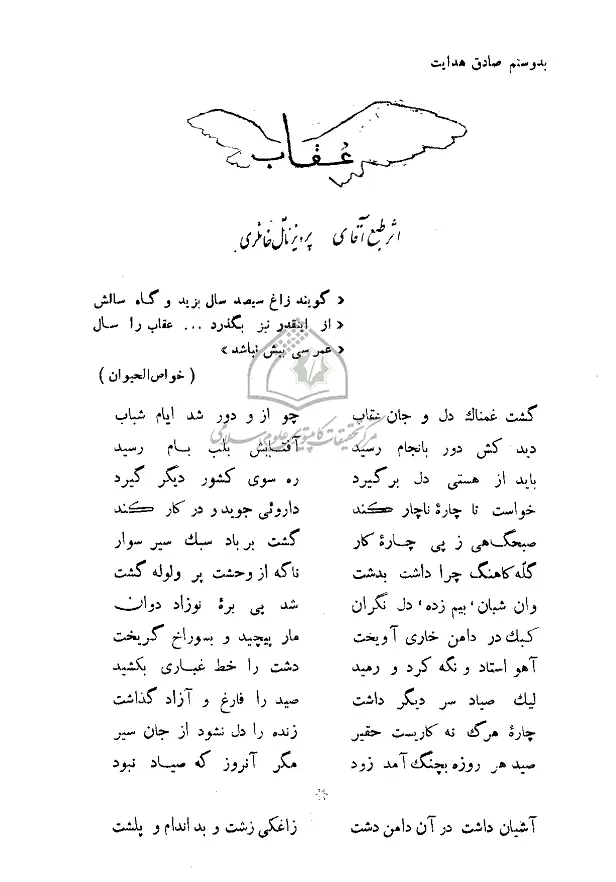 بدوستم صادق هدایت
عُقاب
اثر طبع آقای پرویز ناتل خانلری
« گویند زاغ سیصد سال بزید و گاه سالش
« از اینقدر نیز بگذرد ... عقاب را سال
« عمر سی بیش نباشد »
( خواص‌الحیوان )
گشت غمناك دل و جان عقاب چو ازو دور شد ایام شباب
دید کش دور بانجام رسید آفتابش بلب بام رسید
باید از هستی دل برگیرد ره سوی کشور دیگر گیرد
خواست تا چارهٔ ناچار کند داروئی جوید و در کار کند
صبحگاهی ز پی چارهٔ کار گشت بر باد سبك سیر سوار
گلّه کاهنگ چرا داشت بدشت ناگه از وحشت پر ولوله گشت
وان شبان، بیم زده، دل نگران شد پی برهٔ نوزاد دوان
کبك در دامن خاری آویخت مار پیچید و بسوراخ گریخت
آهو استاد و نگه کرد و رمید دشت را خط غباری بکشید
لیك صیاد سر دیگر داشت صید را فارغ و آزاد گذاشت
چارهٔ مرگ نه کاریست حقیر زنده را دل نشود از جان سیر
صید هر روزه بچنگ آمد زود مگر آنروز که صیاد نبود
آشیان داشت در آن دامن دشت زاغکی زشت و بد اندام و پلشت
مرکز تحقیقات کامپیوتری علوم اسلامی